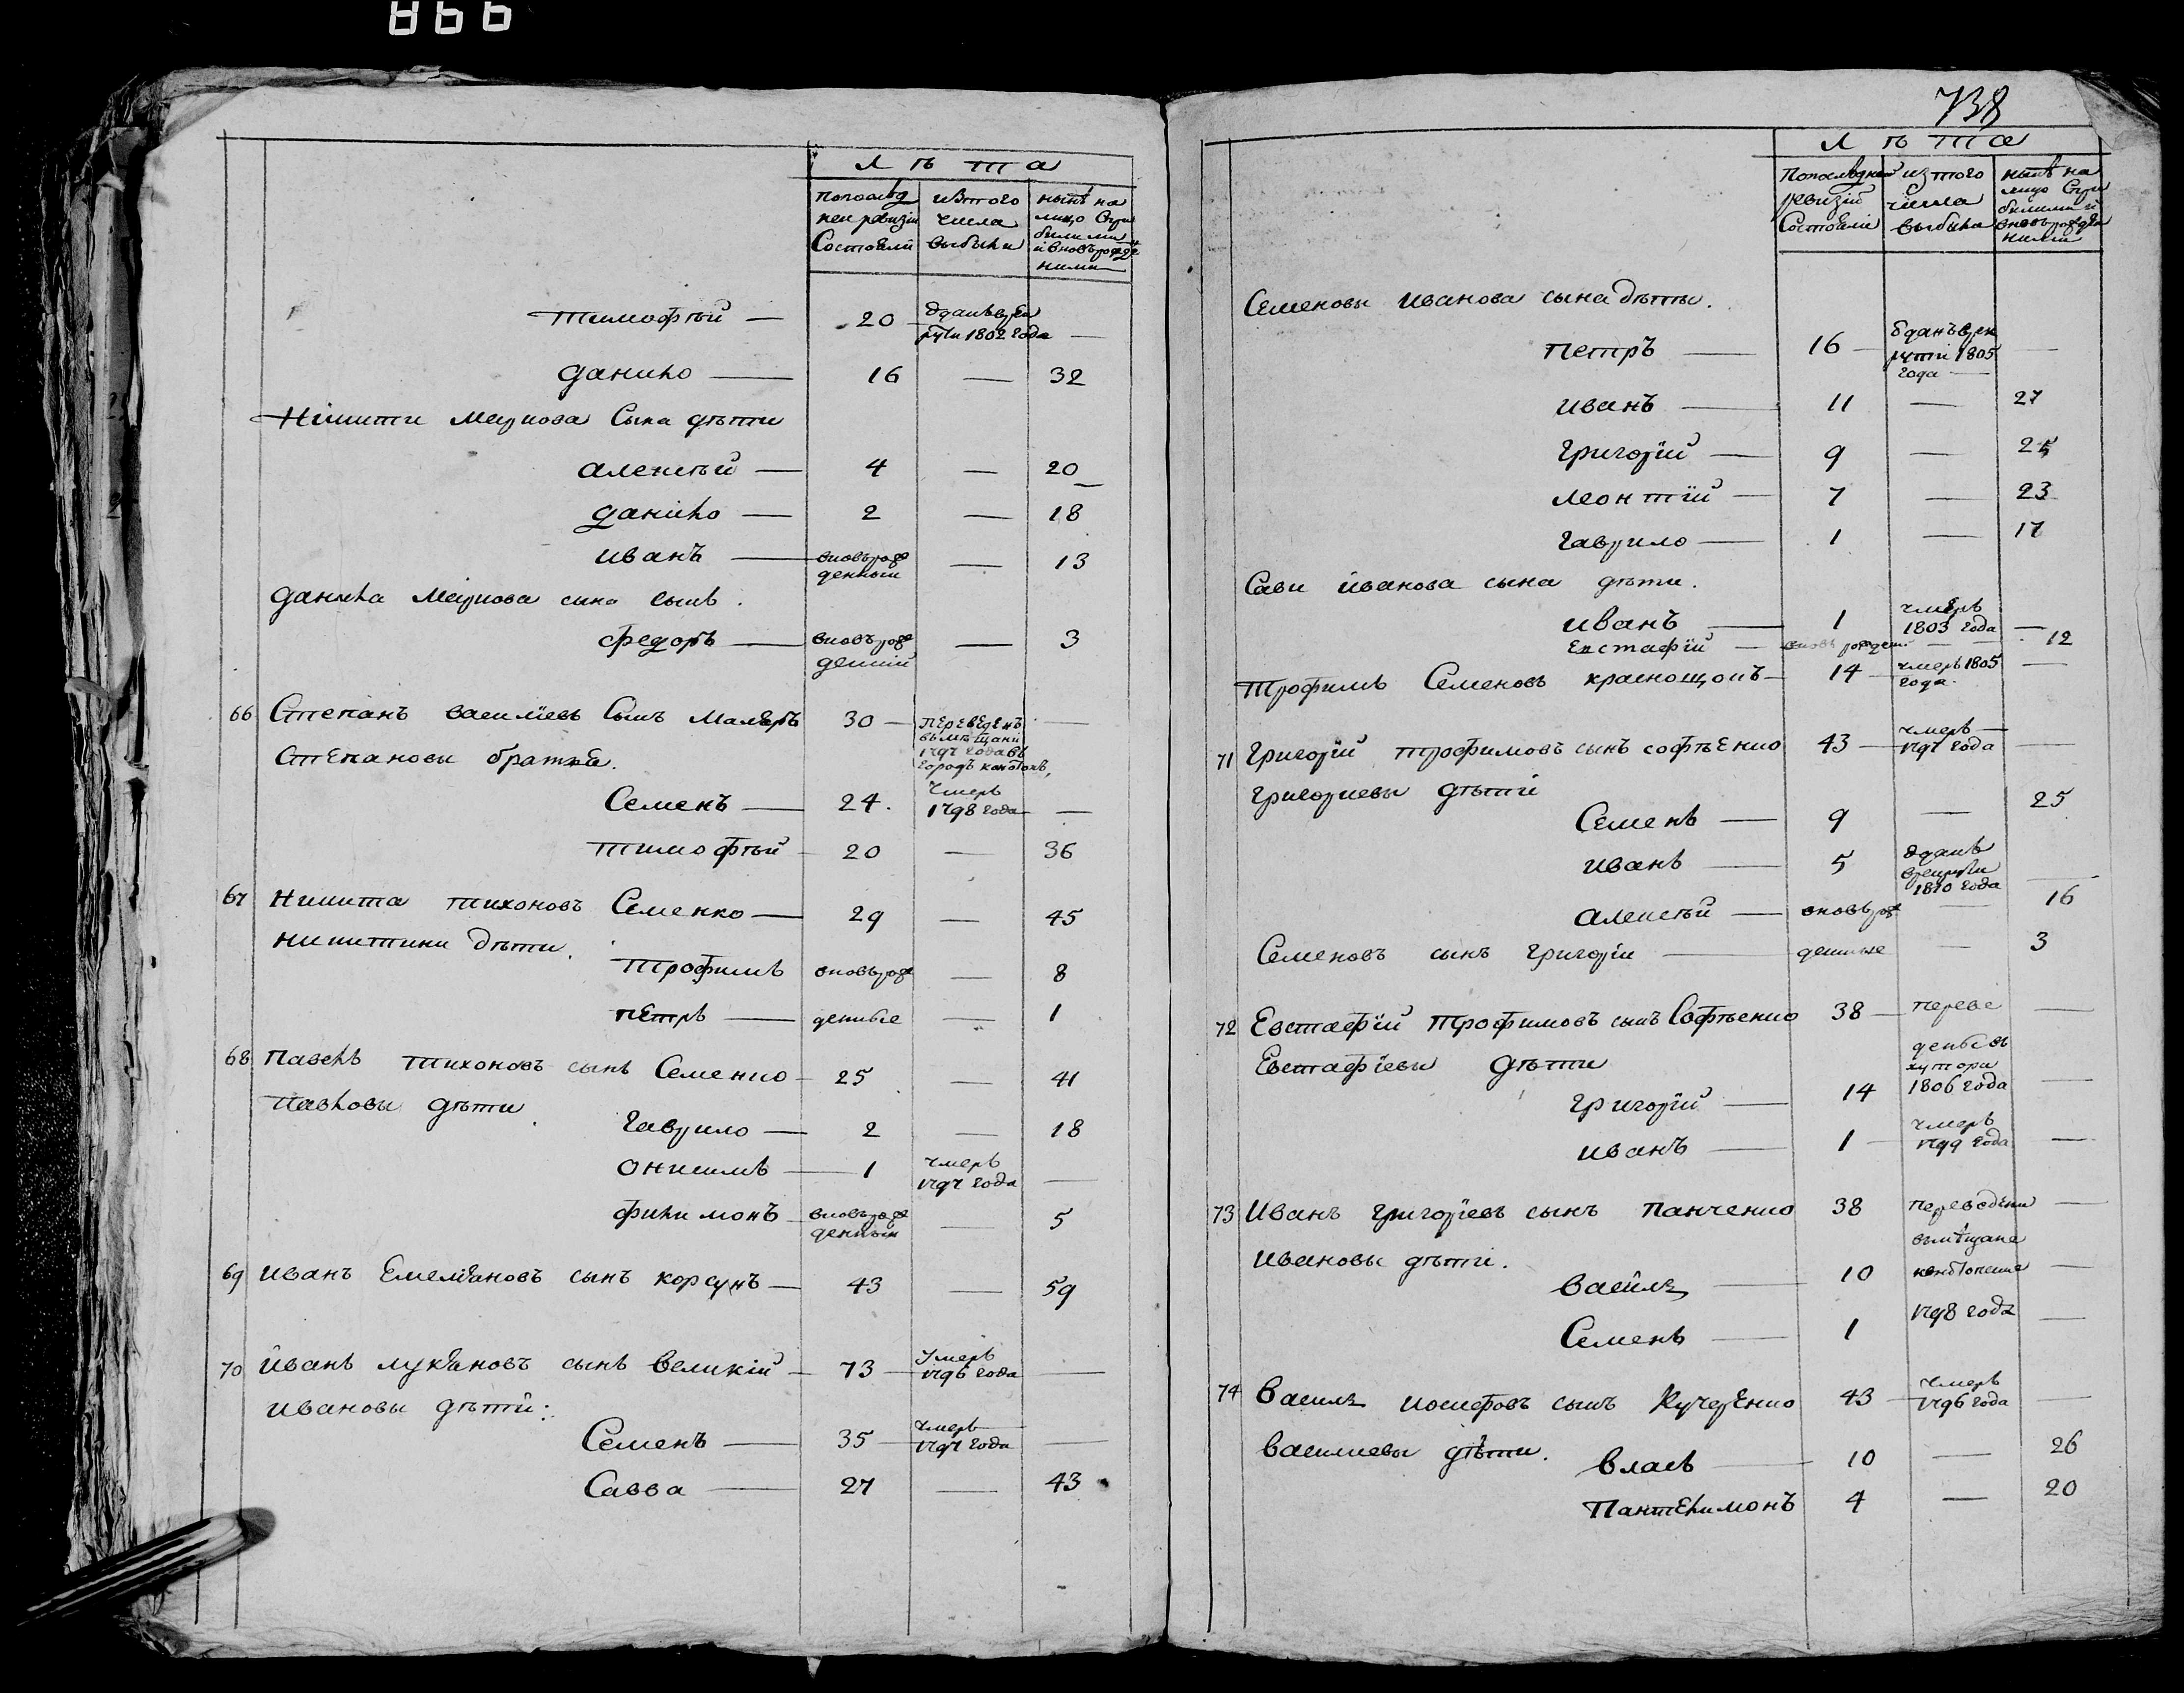 866
Лѣта
Попослѣд
ней ревизіи
Состояли
изтого
числа
выбыли
нынѣ на
лицо
ними
Тимофѣй — 20
1802 года —
Данило — 16 — 32
Никити Маркова Сына дѣти
Алексѣй — 4 — 20
Данило — 2 — 18
Иванъ — вновърож
денный — 13
Данила Маркова сына сынъ.
Федоръ — вновърож — 3
денный
66 Степанъ Василіевъ Сынъ Маляръ 30 — переведенъ —
вмѣщани
1797 годавъ
городъ конотопъ,
Степановы братья.
Семенъ — 24. умеръ
1798 года —
Тимофѣй — 20 — 36
67 Никита Тихоновъ Семенко — 29 — 45
Никитини дѣти.
Трофимъ вновьрож — 8
Петръ — денные — 1
68 Павелъ Тихоновъ сынъ Семенко — 25 — 41
Павловы дѣти.
Гаврило — 2 — 18
Онисимъ — 1 умеръ
1797 года —
Филимонъ — вновьрож
денный — 5
69 Иванъ Емелѣановъ сынъ Корсунъ — 43 — 59
70 Иванъ Лукѣановъ сынъ Великій — 73 — умеръ
1796 года —
Ивановы дѣти:
Семенъ — 35 — умеръ
1797 года —
Савва — 27 — 43
738
Лѣта
Попослѣдней
ревизіи
Состояли
изтого
числа
выбыли
нынѣ на
лицо
ними
Семеновы Иванова сына дѣты.
Петръ — 16 — отданъ врек
рути 1805
года —
Иванъ — 11 — 27
Григорій — 9 — 25
Леонтій — 7 — 23
Гаврило — 1 — 17
Сави Иванова сына дѣти.
Иванъ — 1 умеръ
1803 года —
Евстафій — вновь рожден — 12
Трофимъ Семеновъ Краснощокъ — 14 — умеръ 1805
года. —
71 Григорій Трофимовъ сынъ Софѣенко 43 — умеръ —
1797 года —
Григориевы дѣти
Семенъ — 9 — 25
Иванъ — 5 отданъ
врекруты
1810 года —
Алексѣй — вновьрож — 16
Семеновъ сынъ Григорій — денные — 3
72 Евстафій Трофимовъ сынъ Софѣенко 38 — переве —
Евстафіевы дѣти
деные въ
хутори
Григорій — 14 1806 года —
Иванъ — 1 — умеръ
1799 года —
73 Иванъ Григоріевъ сынъ Панченко 38 переведени —
Ивановы дѣти.
вмѣщане
Василь — 10 конотопские —
Семенъ — 1 1798 года —
74 Василь Иосифовъ сынъ Кучеренко 43 — умеръ
1796 года —
Василиевы дѣти.
Власъ — 10 — 26
Пантелимонъ 4 — 20